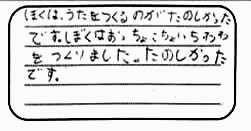 ぼくは、うたをつくるのがたのしかった
です。ぼくはおっちょこちょいちわわ
をつくりました。たのしかった
です。